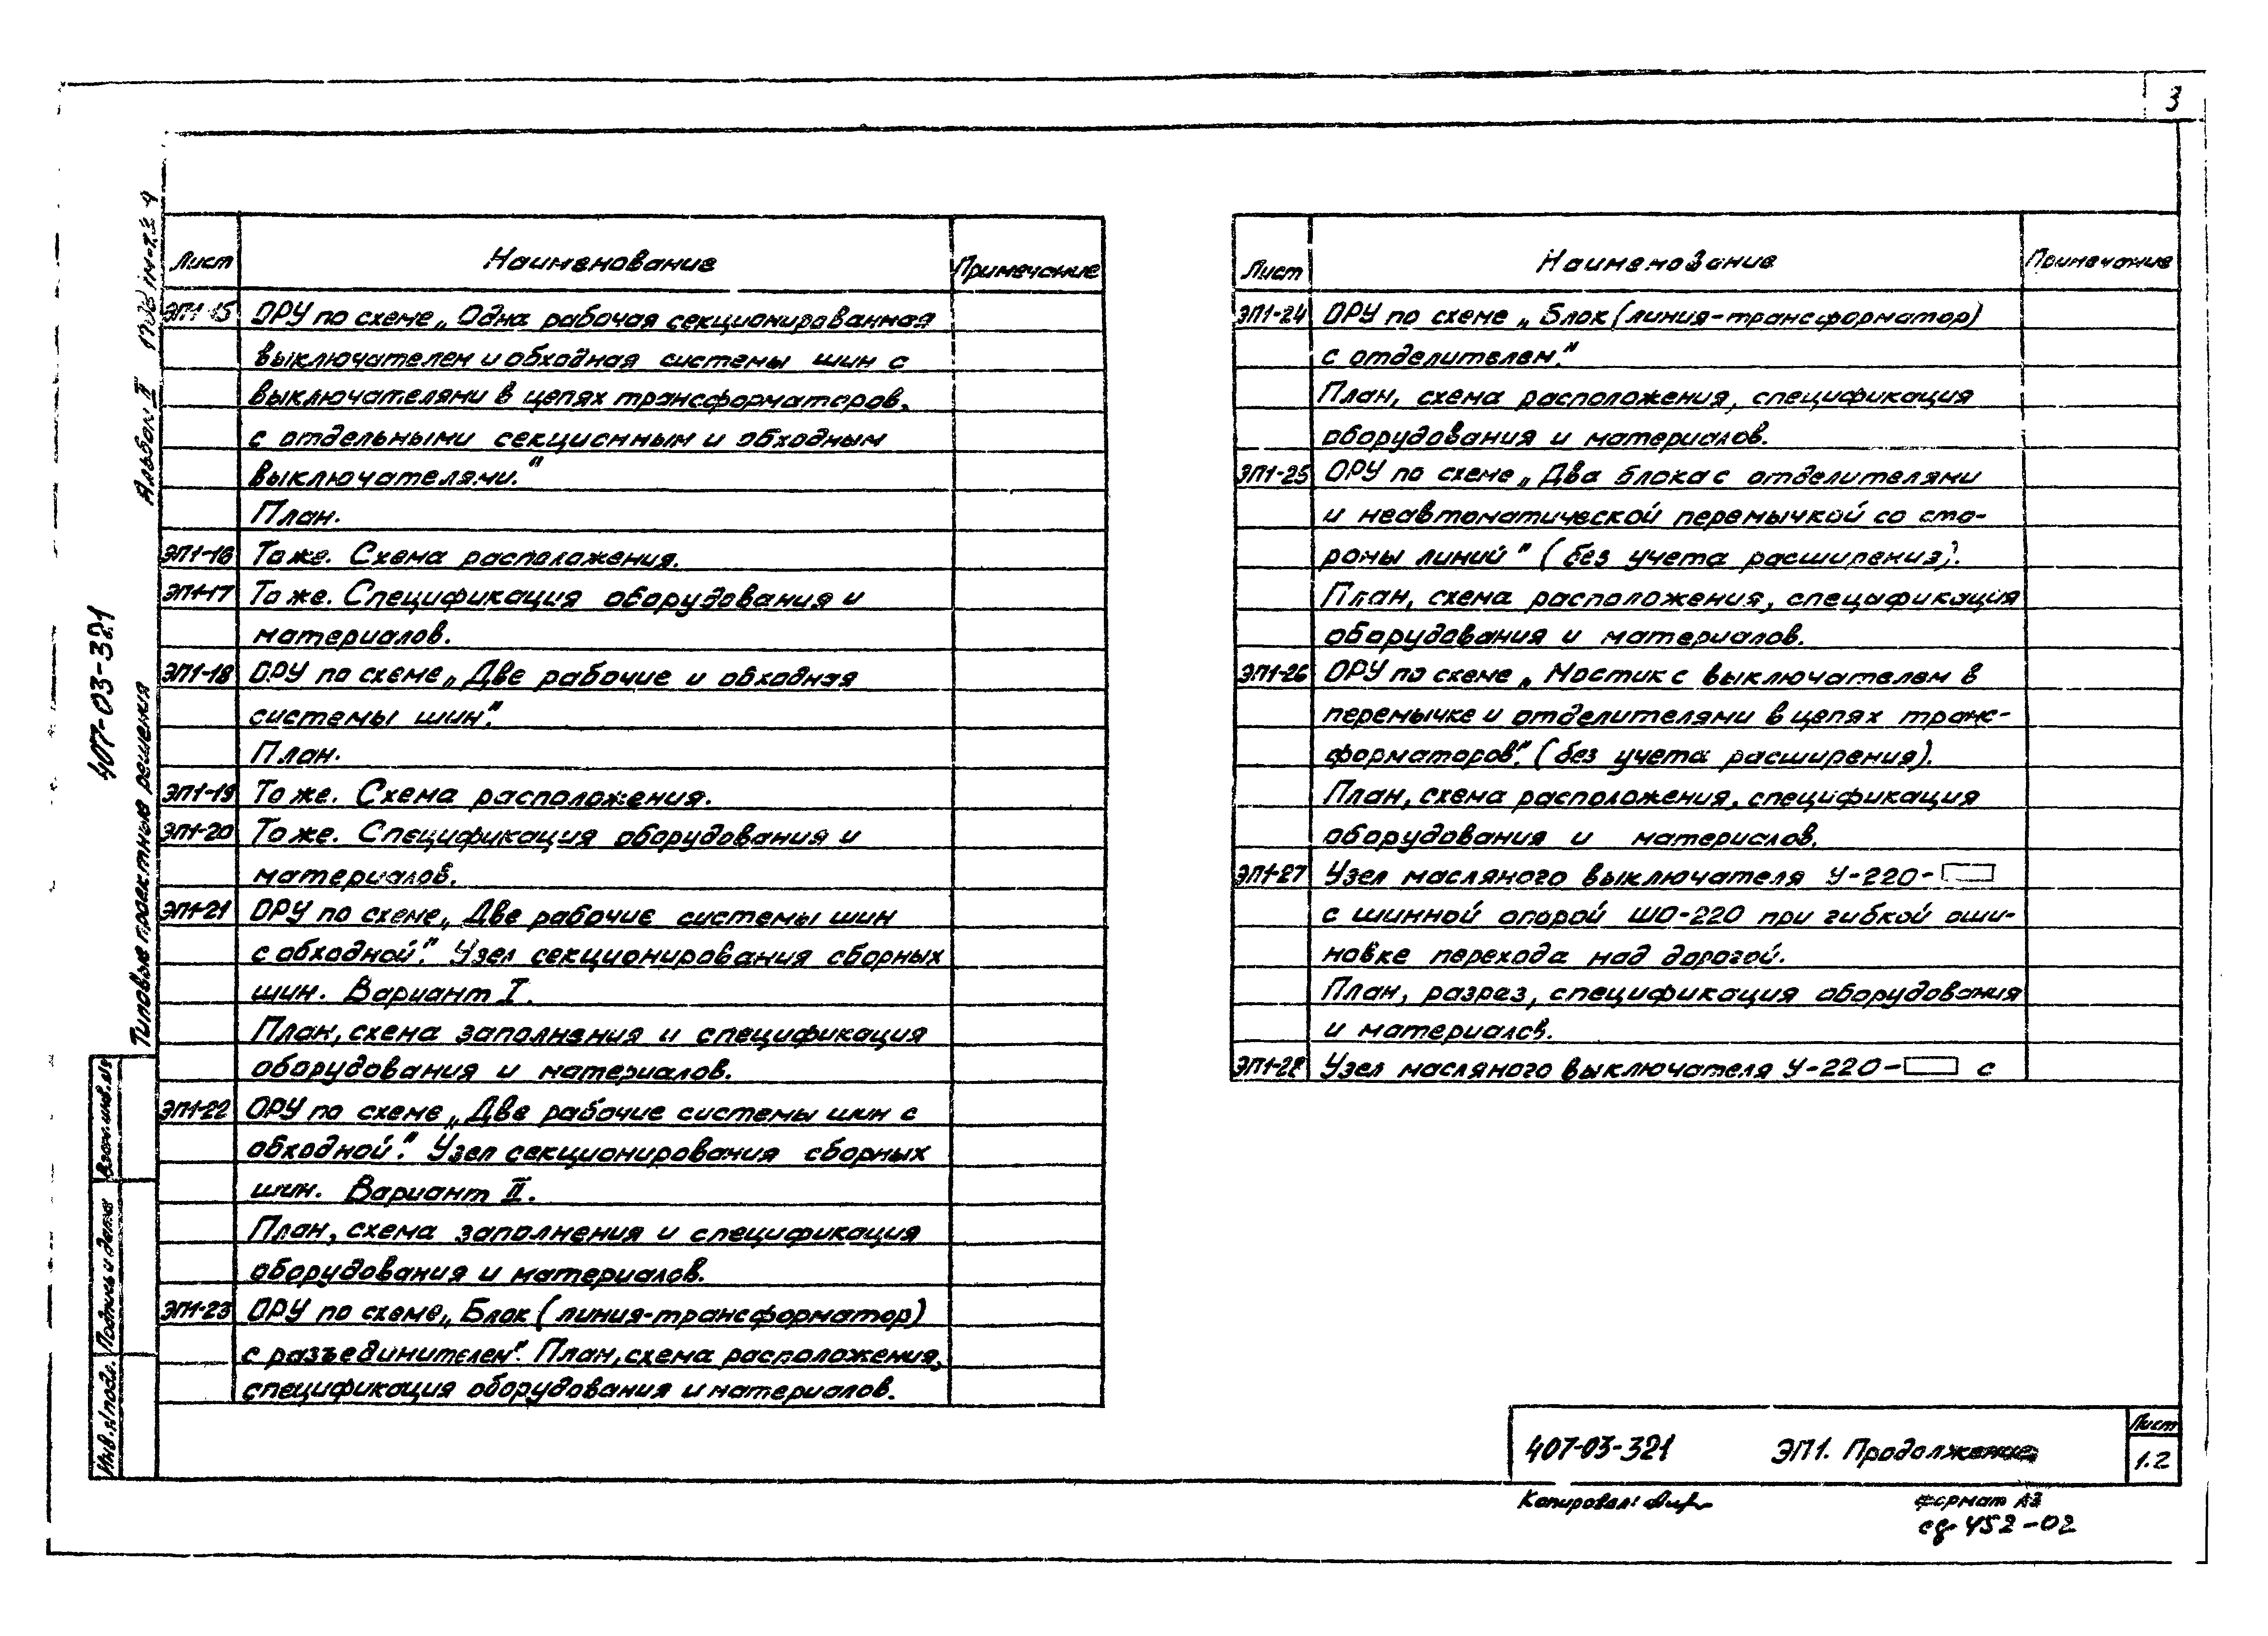 3
Лист Наименование Примечание
ЭП1-15 ОРУ по схеме „Одна рабочая секционированная
выключателем и обходная системы шин с
выключателями в цепях трансформаторов,
с отдельными секционным и обходным
выключателями."
План.
ЭП1-16 То же. Схема расположения.
ЭП1-17 То же. Спецификация оборудования и
материалов.
ЭП1-18 ОРУ по схеме „Две рабочие и обходная
системы шин".
План.
ЭП1-19 То же. Схема расположения.
ЭП1-20 То же. Спецификация оборудования и
материалов.
ЭП1-21 ОРУ по схеме „Две рабочие системы шин
с обходной". Узел секционирования сборных
шин. Вариант I.
План, схема заполнения и спецификация
оборудования и материалов.
ЭП1-22 ОРУ по схеме „Две рабочие системы шин с
обходной". Узел секционирования сборных
шин. Вариант II.
План, схема заполнения и спецификация
оборудования и материалов.
ЭП1-23 ОРУ по схеме „Блок (линия-трансформатор)
с разъединителем". План, схема расположения,
спецификация оборудования и материалов.
Лист Наименование Примечание
ЭП1-24 ОРУ по схеме „Блок (линия-трансформатор)
с отделителем."
План, схема расположения, спецификация
оборудования и материалов.
ЭП1-25 ОРУ по схеме „Два блока с отделителями
и неавтоматической перемычкой со сто-
роны линий" (без учета расширения).
План, схема расположения, спецификация
оборудования и материалов.
ЭП1-26 ОРУ по схеме „Мостик с выключателем в
перемычке и отделителями в цепях транс-
форматоров". (без учета расширения).
План, схема расположения, спецификация
оборудования и материалов.
ЭП1-27 Узел масляного выключателя У-220-
с шинной опорой ШО-220 при гибкой оши-
новке перехода над дорогой.
План, разрез, спецификация оборудования
и материалов.
ЭП1-28 Узел масляного выключателя У-220- с
407-03-321
Типовые проектные решения Альбом II
Взам. инв. №
Подпись и дата
Инв. № подл.
407-03-321 ЭП1. Продолжение
Лист
1.2
Копировал:
формат А3
452-02